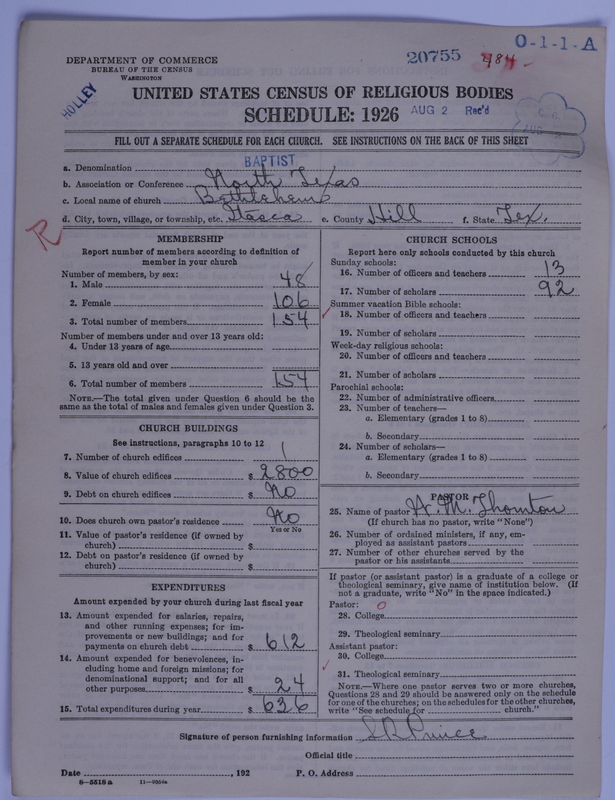 DEPARTMENT OF COMMERCE
BUREAU OF THE CENSUS
WASHINGTON
20755 984
O-1-1-A
HOLLEY
UNITED STATES CENSUS OF RELIGIOUS BODIES
SCHEDULE: 1926
AUG 2 Rec'd
FILL OUT A SEPARATE SCHEDULE FOR EACH CHURCH. SEE INSTRUCTIONS ON THE BACK OF THIS SHEET
a. Denomination BAPTIST
b. Association or Conference North Texas
c. Local name of church Bethlehem
d. City, town, village, or township, etc. Itasca e. County Hill f. State Tex.
R
MEMBERSHIP
Report number of members according to definition of
member in your church
Number of members, by sex:
1. Male 48
2. Female 106
3. Total number of members 154
Number of members under and over 13 years old:
4. Under 13 years of age
5. 13 years old and over
6. Total number of members 154
NOTE.—The total given under Question 6 should be the
same as the total of males and females given under Question 3.
CHURCH BUILDINGS
See instructions, paragraphs 10 to 12
7. Number of church edifices 1
8. Value of church edifices $ 2800
9. Debt on church edifices $ No
10. Does church own pastor's residence No
Yes or No
11. Value of pastor's residence (if owned by
church) $
12. Debt on pastor's residence (if owned by
church) $
EXPENDITURES
Amount expended by your church during last fiscal year
13. Amount expended for salaries, repairs,
and other running expenses; for im-
provements or new buildings; and for
payments on church debt $ 612
14. Amount expended for benevolences, in-
cluding home and foreign missions; for
denominational support; and for all
other purposes $ 24
15. Total expenditures during year $ 636
CHURCH SCHOOLS
Report here only schools conducted by this church
Sunday schools:
16. Number of officers and teachers 13
17. Number of scholars 92
Summer vacation Bible schools:
18. Number of officers and teachers
19. Number of scholars
Week-day religious schools:
20. Number of officers and teachers
21. Number of scholars
Parochial schools:
22. Number of administrative officers
23. Number of teachers—
a. Elementary (grades 1 to 8)
b. Secondary
24. Number of scholars—
a. Elementary (grades 1 to 8)
b. Secondary
PASTOR
25. Name of pastor H. M. Thornton
(If church has no pastor, write "None")
26. Number of ordained ministers, if any, em-
ployed as assistant pastors
27. Number of other churches served by the
pastor or his assistants
If pastor (or assistant pastor) is a graduate of a college or
theological seminary, give name of institution below. (If
not a graduate, write "No" in the space indicated.)
Pastor: O
28. College
29. Theological seminary
Assistant pastor:
30. College
31. Theological seminary
NOTE.—Where one pastor serves two or more churches,
Questions 28 and 29 should be answered only on the schedule
for one of the churches; on the schedules for the other churches,
write "See schedule for church."
Signature of person furnishing information
Official title
Date , 192 P. O. Address
8-5518a 11-9264a